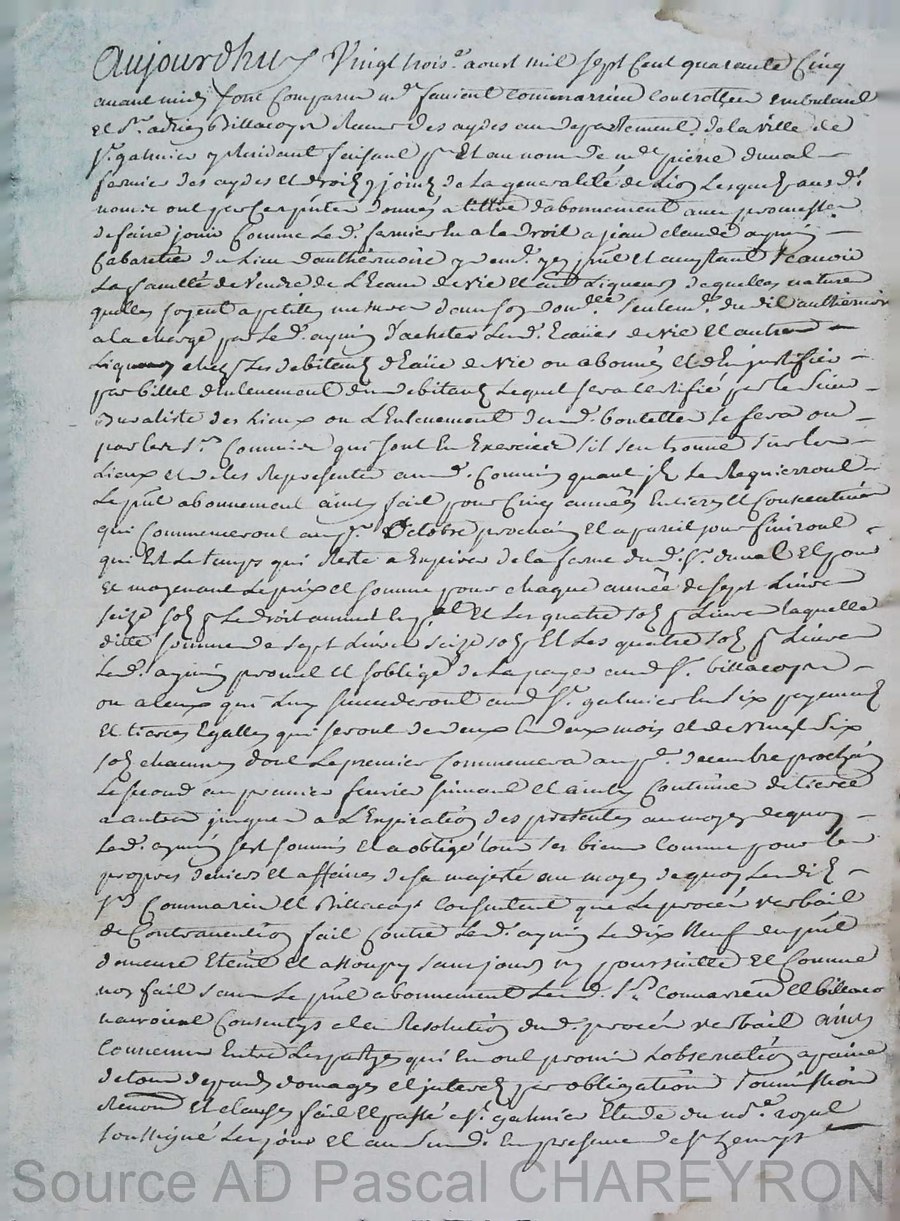 Aujourdhuy Vingt trois.e aoust mil sept Cent quarante Cinq
avant midy sont Comparu controlleur embulant
et Sr. adrien Billacoys Receveur des aydes au departement de la ville de
St. galmier y Residant faisant pr. et au nom de pierre duval
fermier des aydes et droits y joins de La generalité de Lion Lesquels aus ds.
noms ont par Ces ptes donnés a tiltre dabonnement avec promesse
de faire jouir Comme Led. fermier en a le droit a jean claude aymin
Cabaretier du Lieu pnt et acceptant scavoir
La faculté de Vendre de L'Eau de Vie et autres Liqueurs de quelles nature
quelles soyent a petittes mesures dans son domlle. seulemt. dud.
a la charge par Led. aymin d'achepter Lesd. Eaües de vie et autres
Liqueurs chez Les debitants d'Eaüe de Vie ou abonnés et d'En justiffier
par billet d'Enlevement du debitant Lequel sera certifié par le sieur
Buraliste des Lieux ou L'Enlevement se fera ou
par les Srs. Commis qui sont En Exercice s'il s'en trouve sur les
Lieux et de les Representer aux ds. Commis quant ils Le Requierront
Le pnt abonnement ainsy fait pour Cinq années Entieres et Consecutives
qui Commenceront au pr. Octobre prochain et a pareil jour finiront
qui Est Le temps qui Reste a Expirer de la ferme dud. Sr. duval Et pour
Et moyenant Le prix et somme pour chaque année de sept Livres
seize sols pr Le droit annuel Et Les quatre sols pr Livre laquelle
ditte somme de sept Livres seize sols Et Les quatre sols pr Livre
Led. aymin promet et soblige de La payer aud. Sr. billacoys
ou a Ceux qui Luy succederont aud. St. galmier En six payements
Et tierces Egalles qui seront de deux En deux mois et de Vingt six
sols chacunes dont Le premier Commencera au pr. decembre prochain
Le second au premier fevrier suivant et ainsy Continuer de tierce
a autre jusques a L'Expiration des presentes au moyen de quoy
Led. aymin s'est soumis et a obligé tous ses biens Comme pour les
propres deniers et affaires de sa majesté au moyen de quoy Lesdits
Srs. et Billacoys Consentent que Le procès verbail
de Contravention fait Contre Led. aymin Le dix Neuf du pnt
demeure Eteint et assoupy sans jours ny poursuitte Et Comme
non fait sans Le pnt abonnement Lesd. Srs. et billaco
n'auroient Consentys a la Resolution dud. procès verbail ainsy
Convenus Entre Les partyes qui En ont promis L'observation a paine
de tous depends domages et interets par obligation soumission
Renon. et clauses fait Et passé a St. galmier Etude du Nore. royal
soussigné Les jour et an susd. En presence de Sr
Source AD Pascal CHAREYRON